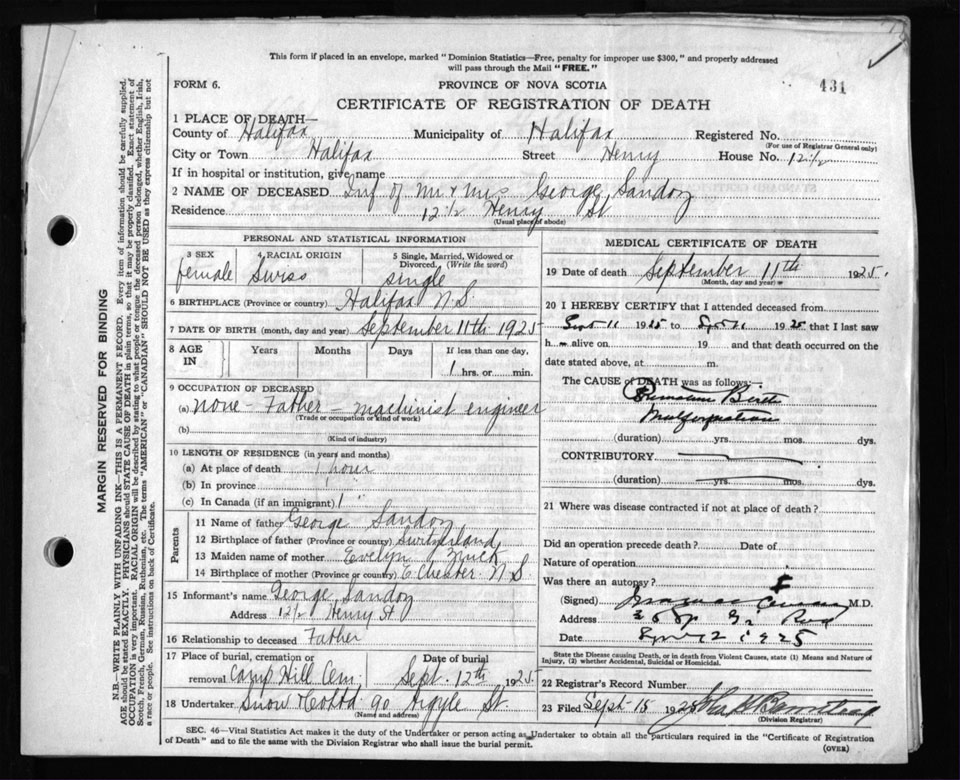 This form if placed in an envelope, marked "Dominion Statistics—Free, penalty for improper use $300," and properly addressed
will pass through the Mail "FREE."
FORM 6.
PROVINCE OF NOVA SCOTIA
431
CERTIFICATE OF REGISTRATION OF DEATH
1 PLACE OF DEATH—
County of Halifax Municipality of Halifax Registered No.
(For use of Registrar General only)
City or Town Halifax Street Henry House No. 12½
If in hospital or institution, give name
2 NAME OF DECEASED Inf of Mr & Mrs George Sandoz
Residence 12½ Henry St
(Usual place of abode)
PERSONAL AND STATISTICAL INFORMATION
3 SEX 4 RACIAL ORIGIN 5 Single, Married, Widowed or
Divorced. (Write the word)
female Swiss single
6 BIRTHPLACE (Province or country) Halifax N.S.
7 DATE OF BIRTH (month, day and year) September 11th 1925
8 AGE IN Years Months Days If less than one day,
1 hrs. or min.
9 OCCUPATION OF DECEASED
(a) none - Father - machinist engineer
(Trade or occupation or kind of work)
(b)
(Kind of industry)
10 LENGTH OF RESIDENCE (in years and months)
(a) At place of death 1 hour
(b) In province
(c) In Canada (if an immigrant) 1
Parents
11 Name of father George Sandoz
12 Birthplace of father (Province or country) Switzerland
13 Maiden name of mother Evelyn Zinck
14 Birthplace of mother (Province or country) E. Chester N.S.
15 Informant's name George Sandoz
Address 12½ Henry St
16 Relationship to deceased Father
17 Place of burial, cremation or Date of burial
removal Camp Hill Cem. Sept. 12th 1925
18 Undertaker Snow & Co Ltd 90 Argyle St.
(Name and address)
MEDICAL CERTIFICATE OF DEATH
19 Date of death September 11th 1925.
(Month, day and year)
20 I HEREBY CERTIFY that I attended deceased from
Sept 11 1925 to Sept 11 1925 that I last saw
h alive on 19 and that death occurred on the
date stated above, at m.
The CAUSE of DEATH was as follows:
Premature Birth
Malformation
(duration) yrs. mos. dys.
CONTRIBUTORY
(duration) yrs. mos. dys.
21 Where was disease contracted if not at place of death?
Did an operation precede death? Date of
Nature of operation
Was there an autopsy?
(Signed) M.D.
Address Rd
Date Sept 12 1925
State the Disease causing Death, or in death from Violent Causes, state (1) Means and Nature of
Injury, (2) whether Accidental, Suicidal or Homicidal.
22 Registrar's Record Number
23 Filed Sept 15 1925
(Division Registrar)
SEC. 46—Vital Statistics Act makes it the duty of the Undertaker or person acting as Undertaker to obtain all the particulars required in the "Certificate of Registration
of Death" and to file the same with the Division Registrar who shall issue the burial permit.
(OVER)
MARGIN RESERVED FOR BINDING
N.B.—WRITE PLAINLY WITH UNFADING INK—THIS IS A PERMANENT RECORD. Every item of information should be carefully supplied.
AGE should be stated EXACTLY. PHYSICIANS should STATE CAUSE OF DEATH in plain terms, so that it may be properly classified. Exact statement of
OCCUPATION is very important. RACIAL ORIGIN will be described by stating to what people or tongue the deceased person belonged, whether English, Irish,
Scotch, French, German, Russian, Ruthenian, etc. The terms "AMERICAN" or "CANADIAN" SHOULD NOT BE USED as they express citizenship but not
a race or people. See instructions on back of Certificate.